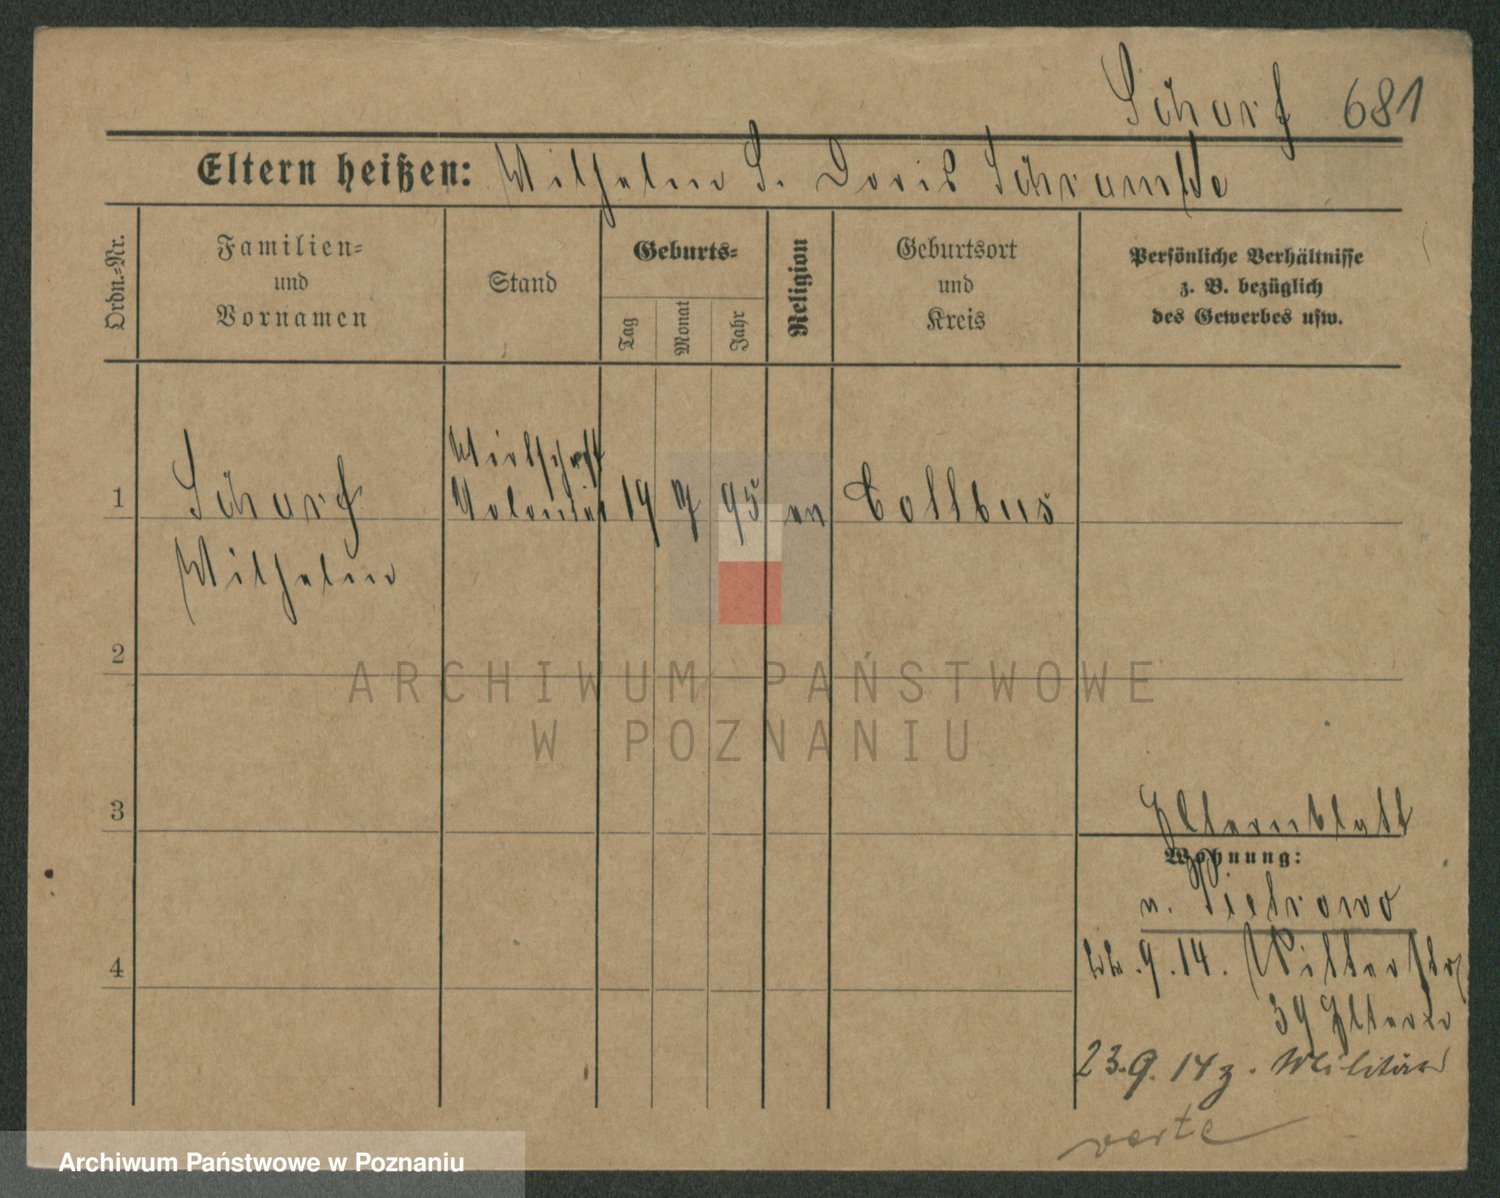 Scharf 681
Eltern heißen: Wilhelm S. Doris Schramke
Ordn.=Nr.
Familien=
und
Vornamen
Stand
Geburts=
Tag
Monat
Jahr
Religion
Geburtsort
und
Kreis
Persönliche Verhältnisse
z. B. bezüglich
des Gewerbes usw.
1
Scharf
Wilhelm
Wirtschaft
Volontär
19
7
95
ev
Cottbus
2
3
4
Elternblatt
Wohnung:
n. Pietrowo
.9.14. Ritterstr
39 Eltern
23.9.14 z. Militär
verte
ARCHIWUM PAŃSTWOWE
W POZNANIU
Archiwum Państwowe w Poznaniu